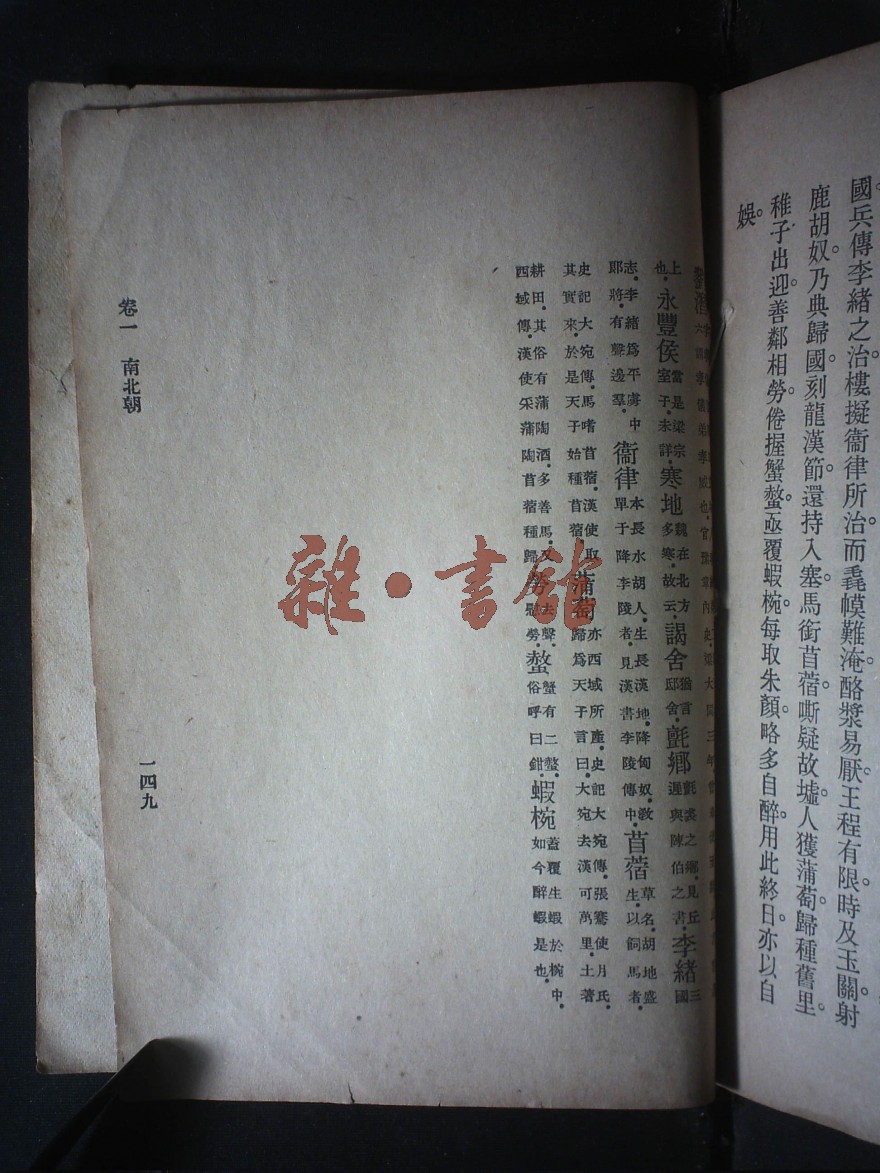 國兵。傳李緒之治樓。擬衞律所治。而毳幙難淹。酪漿易厭。王程有限。時及玉關。射
鹿胡奴。乃典歸國。刻龍漢節。還持入塞。馬銜苜蓿。嘶疑故墟。人獲蒲萄。歸種舊里。
稚子出迎。善鄰相勞。倦握蟹螯。亟覆蝦椀。每取朱顏。略多自醉。用此終日。亦以自
娛。
上也。永豐侯當是梁宗室于未詳。寒地魏在北方多寒。故云。謁舍猶言邸舍。氈鄉氈裘之鄉。見丘遲與陳伯之書。李緒三國
志。李緒爲平虜中郎將。有聲邊羣。衞律本長水胡人。生長漢地。降匈奴。敎單于降李陵者。見漢書李陵傳中。苜蓿草名。胡地盛生。以飼馬者。
史記大宛傳。馬嗜苜蓿。漢使取其實來。於是天子始種苜蓿。蒲萄亦西域所產。史記大宛傳。張騫使月氏。歸爲天子言曰。大宛去漢可萬里。土著
耕田。其俗有蒲陶酒。多善馬。又西域傳。漢使采蒲陶苜蓿種歸。勞去聲。慰勞。螯蟹有二螯。俗呼曰鉗。蝦椀蓋覆生蝦於椀中。如今醉蝦是也。
卷一 南北朝
一四九
雜·書館